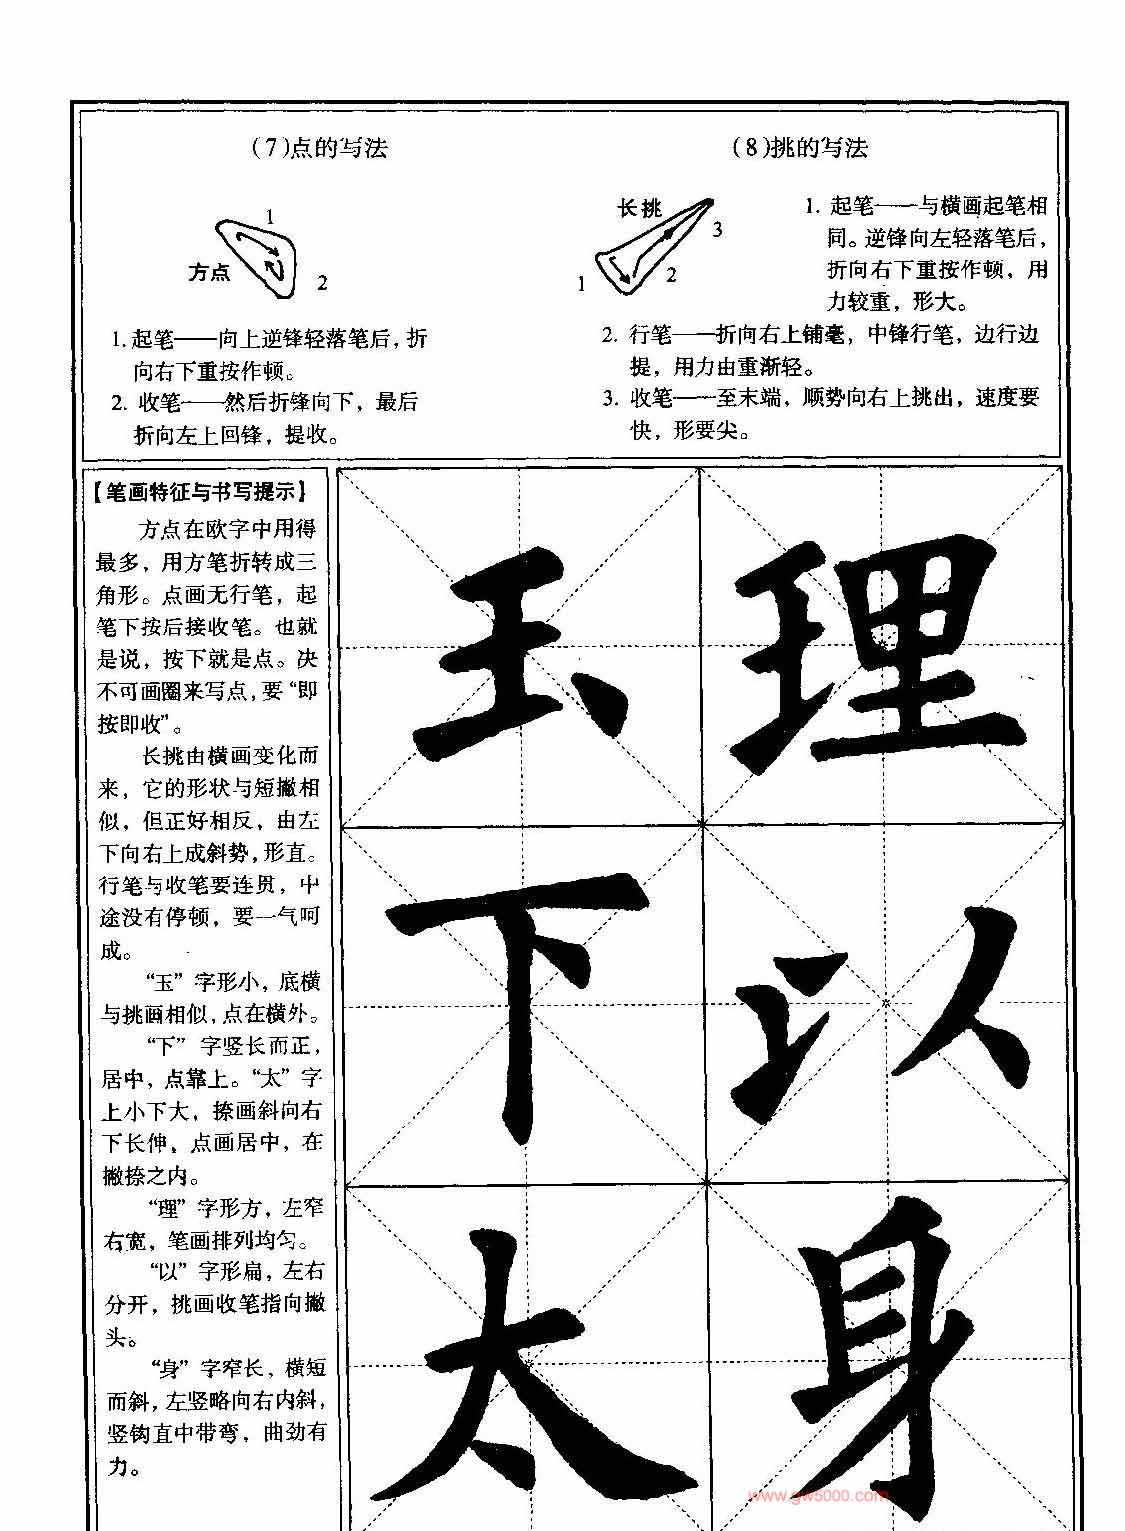 (7)点的写法
1
方点
2
1.起笔——向上逆锋轻落笔后,折
向右下重按作顿。
2. 收笔——然后折锋向下，最后
折向左上回锋，提收。
(8)挑的写法
长挑
3
1
2
1. 起笔——与横画起笔相
同。逆锋向左轻落笔后，
折向右下重按作顿，用
力较重，形大。
2. 行笔——折向右上铺毫，中锋行笔，边行边
提，用力由重渐轻。
3. 收笔——至末端，顺势向右上挑出，速度要
快，形要尖。
【笔画特征与书写提示】
方点在欧字中用得
最多，用方笔折转成三
角形。点画无行笔，起
笔下按后接收笔。也就
是说，按下就是点。决
不可画圈来写点,要“即
按即收”。
长挑由横画变化而
来，它的形状与短撇相
似，但正好相反，由左
下向右上成斜势,形直。
行笔与收笔要连贯，中
途没有停顿，要一气呵
成。
“玉”字形小，底横
与挑画相似,点在横外。
“下”字竖长而正，
居中，点靠上。“太”字
上小下大，捺画斜向右
下长伸，点画居中，在
撇捺之内。
“理”字形方，左窄
右宽，笔画排列均匀。
“以”字形扁，左右
分开，挑画收笔指向撇
头。
“身”字窄长，横短
而斜,左竖略向右内斜,
竖钩直中带弯，曲劲有
力。
玉理
下以
太身
www.gw5000.com